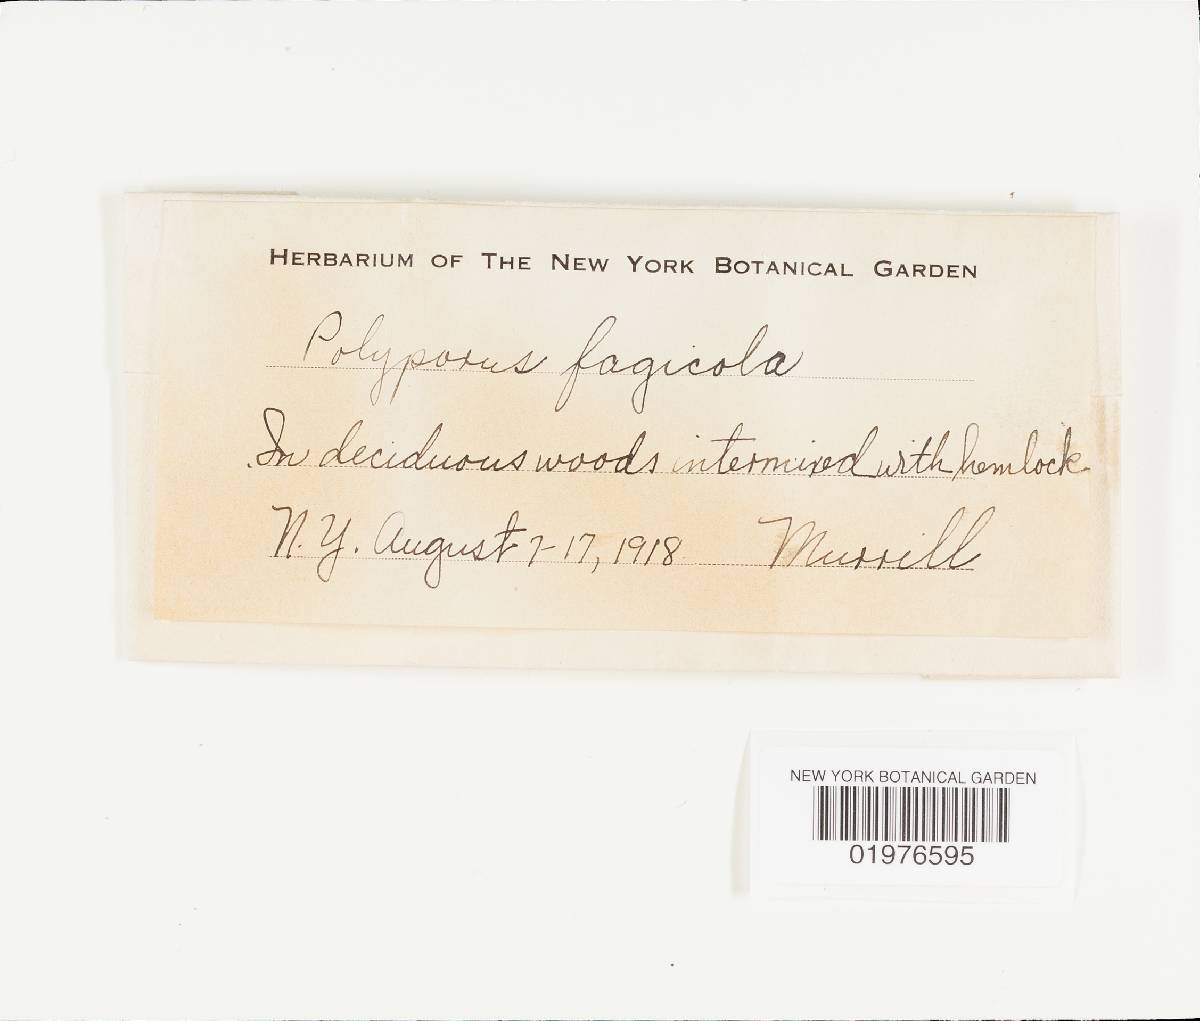 HERBARIUM OF THE NEW YORK BOTANICAL GARDEN
Polyporus fagicola
In deciduous woods intermixed with hemlock.
N.Y. August 7-17, 1918 Murrill
NEW YORK BOTANICAL GARDEN
01976595